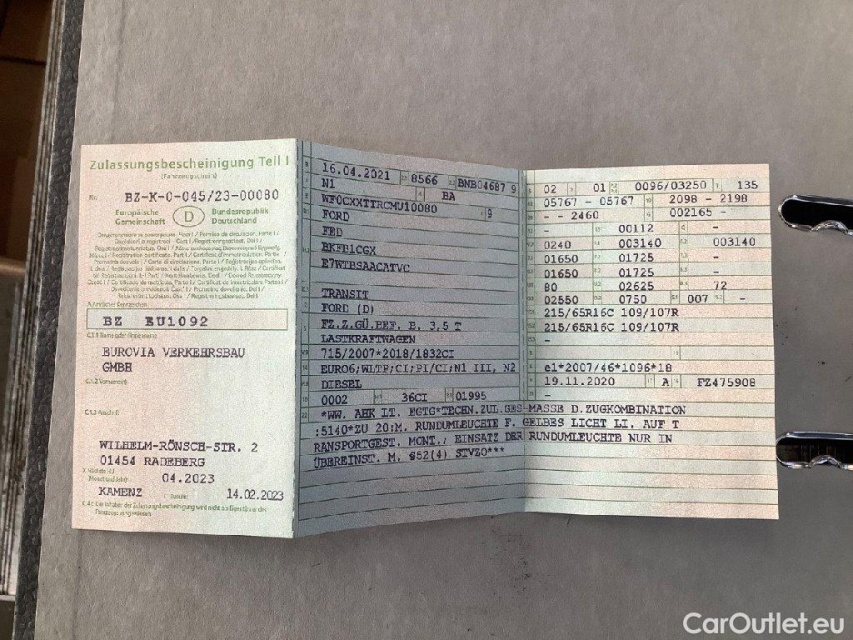 Zulassungsbescheinigung Teil I
(Fahrzeugschein)
Nr. BZ-K-0-045/23-00080
Europäische Gemeinschaft
D
Bundesrepublik Deutschland
BZ EU1092
EUROVIA VERKEHRSBAU
GMBH
WILHELM-RÖNSCH-STR. 2
01454 RADEBERG
04.2023
KAMENZ
14.02.2023
16.04.2021 8566
N1 BA
WF0CXXTTRCMU10080 9
FORD
FED
E7WTBSAACATVC
TRANSIT
FORD (D)
FZ.Z.GÜ.BEF. B. 3,5 T
LASTKRAFTWAGEN
715/2007*2018/1832CI
EURO6;WLTP;CI;PI/CI;N1 III, N2
DIESEL
0002 36CI 01995
*WW. AHK LT. EGTG*TECHN.ZUL.GES-MASSE D.ZUGKOMBINATION
:5140*ZU 20:M. RUNDUMLEUCHTE F. GELBES LICHT LI. AUF T
RANSPORTGEST. MONT./ EINSATZ DER RUNDUMLEUCHTE NUR IN
ÜBEREINST. M. §52(4) STVZO***
02 01 0096/03250 135
05767 - 05767 2098 - 2198
- - 2460 002165 -
- 00112 -
0240 003140 003140
01650 01725 -
01650 01725 -
80 02625 72
02550 0750 007 -
215/65R16C 109/107R
215/65R16C 109/107R
-
e1*2007/46*1096*18
19.11.2020 A FZ475908
-
CarOutlet.eu